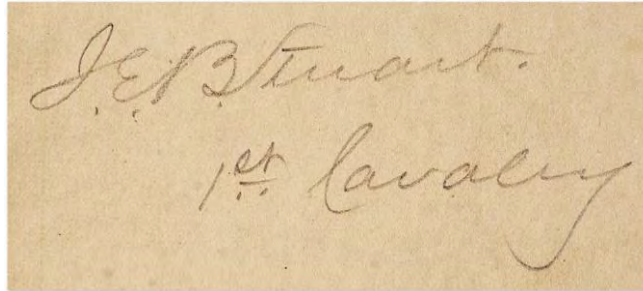 J.E.B. Stuart.
1st Cavalry